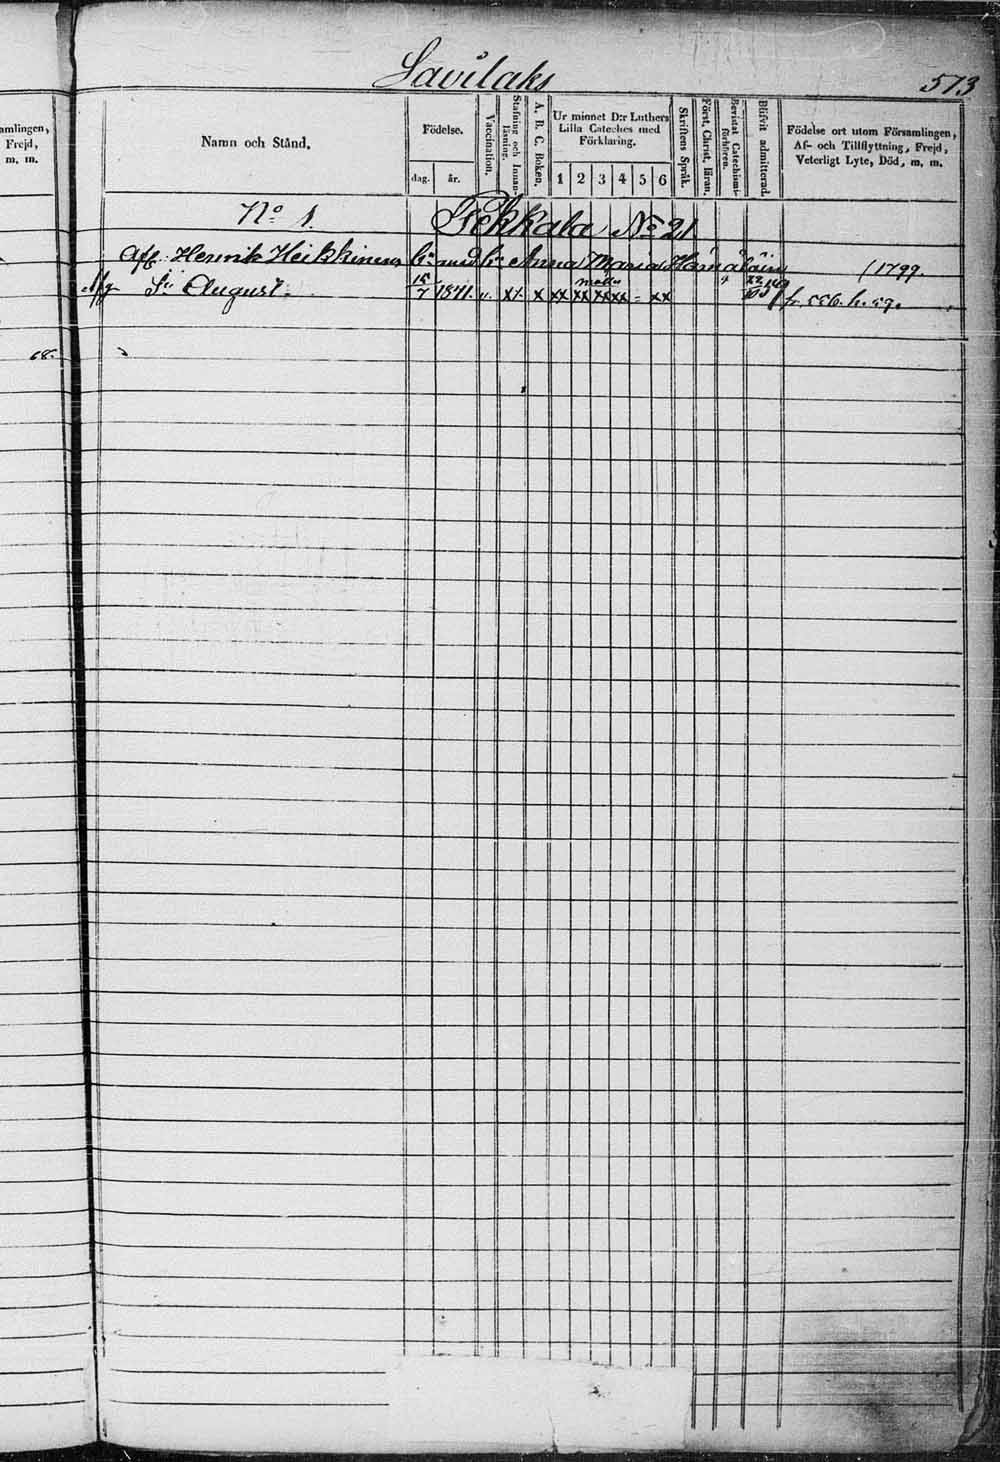 Savilaks
573
amlingen,
Frejd,
m. m.
Namn och Stånd.
Födelse.
dag. år.
Vaccination.
Stafning och Innanläsning.
A. B. C. Boken.
Ur minnet D:r Luthers Lilla Cateches med Förklaring.
1 2 3 4 5 6
Skriftens Språk.
Först. Christ. läran.
Bevistat Catechismiförhören.
Blifvit admitterad.
Födelse ort utom Församlingen, Af- och Tillflyttning, Frejd, Veterligt Lyte, Död, m. m.
No 1. Pekkala No 21
Afl. Henrik Heikkinens Anna Maria (1799.
August. 15/7 1841. x x xx xx xx xx - xx fr. 556. h. 59.
68.